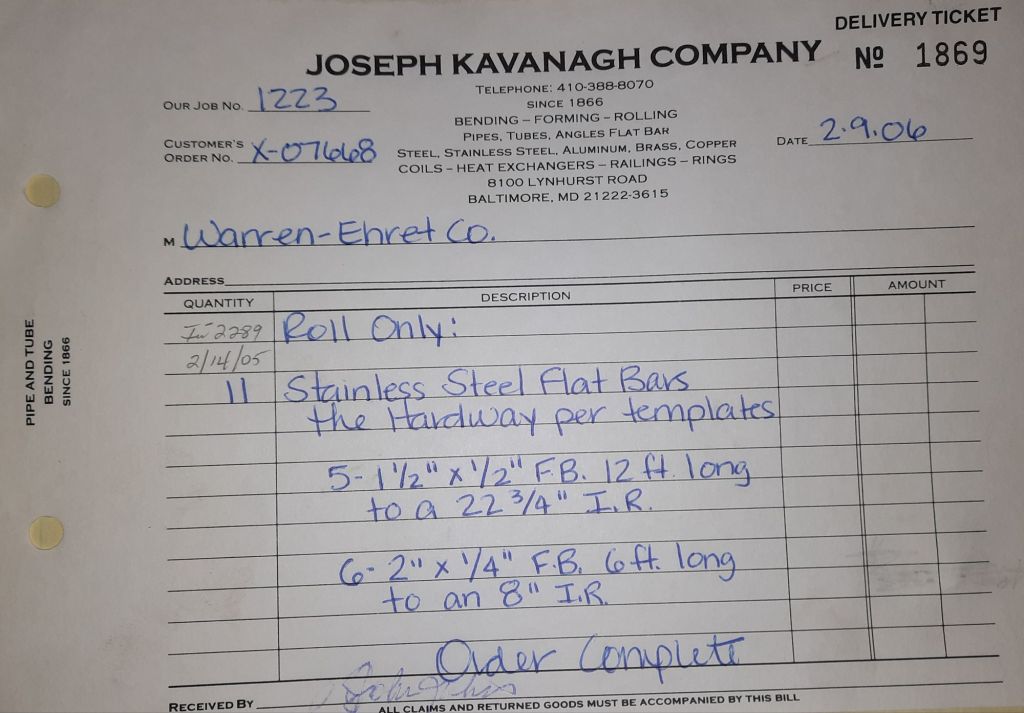 DELIVERY TICKET
JOSEPH KAVANAGH COMPANY
Nº 1869
TELEPHONE: 410-388-8070
SINCE 1866
BENDING – FORMING – ROLLING
PIPES, TUBES, ANGLES FLAT BAR
STEEL, STAINLESS STEEL, ALUMINUM, BRASS, COPPER
COILS – HEAT EXCHANGERS – RAILINGS – RINGS
8100 LYNHURST ROAD
BALTIMORE, MD 21222-3615
OUR JOB NO. 1223
CUSTOMER'S
ORDER NO. X-07668
DATE 2.9.06
M Warren-Ehret Co.
ADDRESS
QUANTITY DESCRIPTION PRICE AMOUNT
2289 Roll Only:
2/14/05
11 Stainless Steel Flat Bars
the Hardway per templates
5- 1 1/2" x 1/2" F.B. 12 ft. long
to a 22 3/4" I.R.
6- 2" x 1/4" F.B. 6 ft. long
to an 8" I.R.
Order Complete
RECEIVED BY
ALL CLAIMS AND RETURNED GOODS MUST BE ACCOMPANIED BY THIS BILL
PIPE AND TUBE
BENDING
SINCE 1866